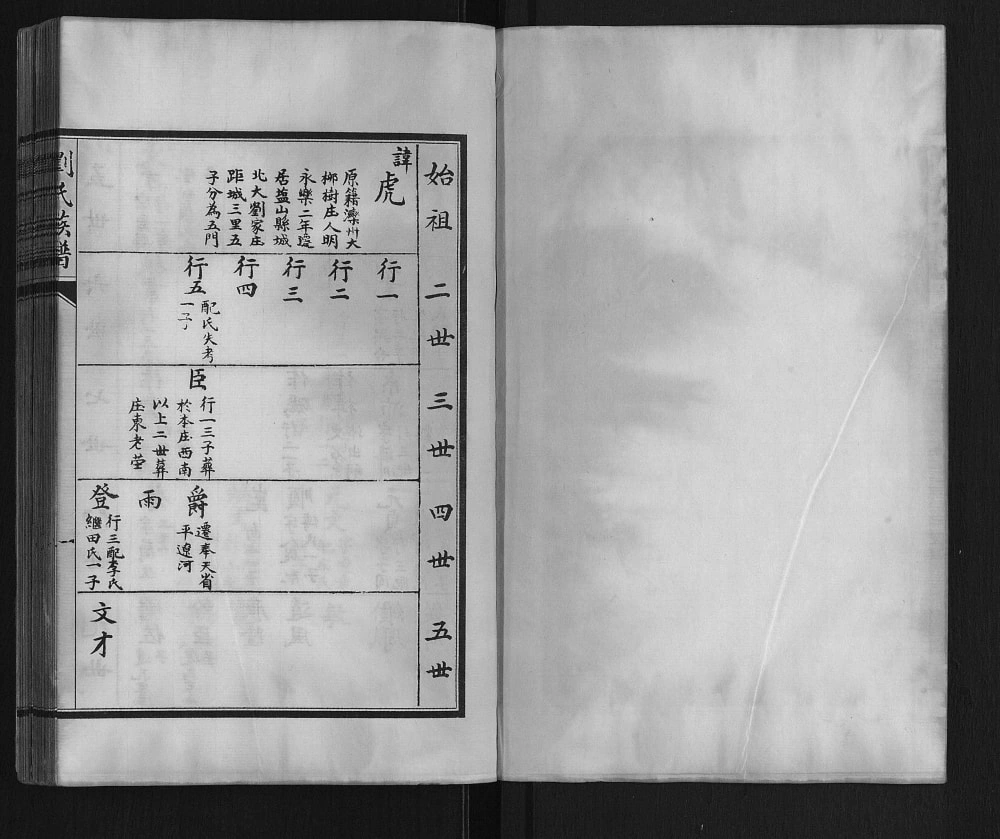 始祖
二世
三世
四世
五世
諱虎
原籍灤州大
柳樹庄人明
永樂二年遷
居盐山縣城
北大劉家庄
距城三里五
子分為五門
行一
行二
行三
行四
行五
配氏失考
一子
臣
行一三子葬
於本庄西南
以上二世葬
庄東老茔
爵
遷奉天省
平遼河
雨
登
行三配李氏
繼田氏一子
文才
劉氏族譜
一